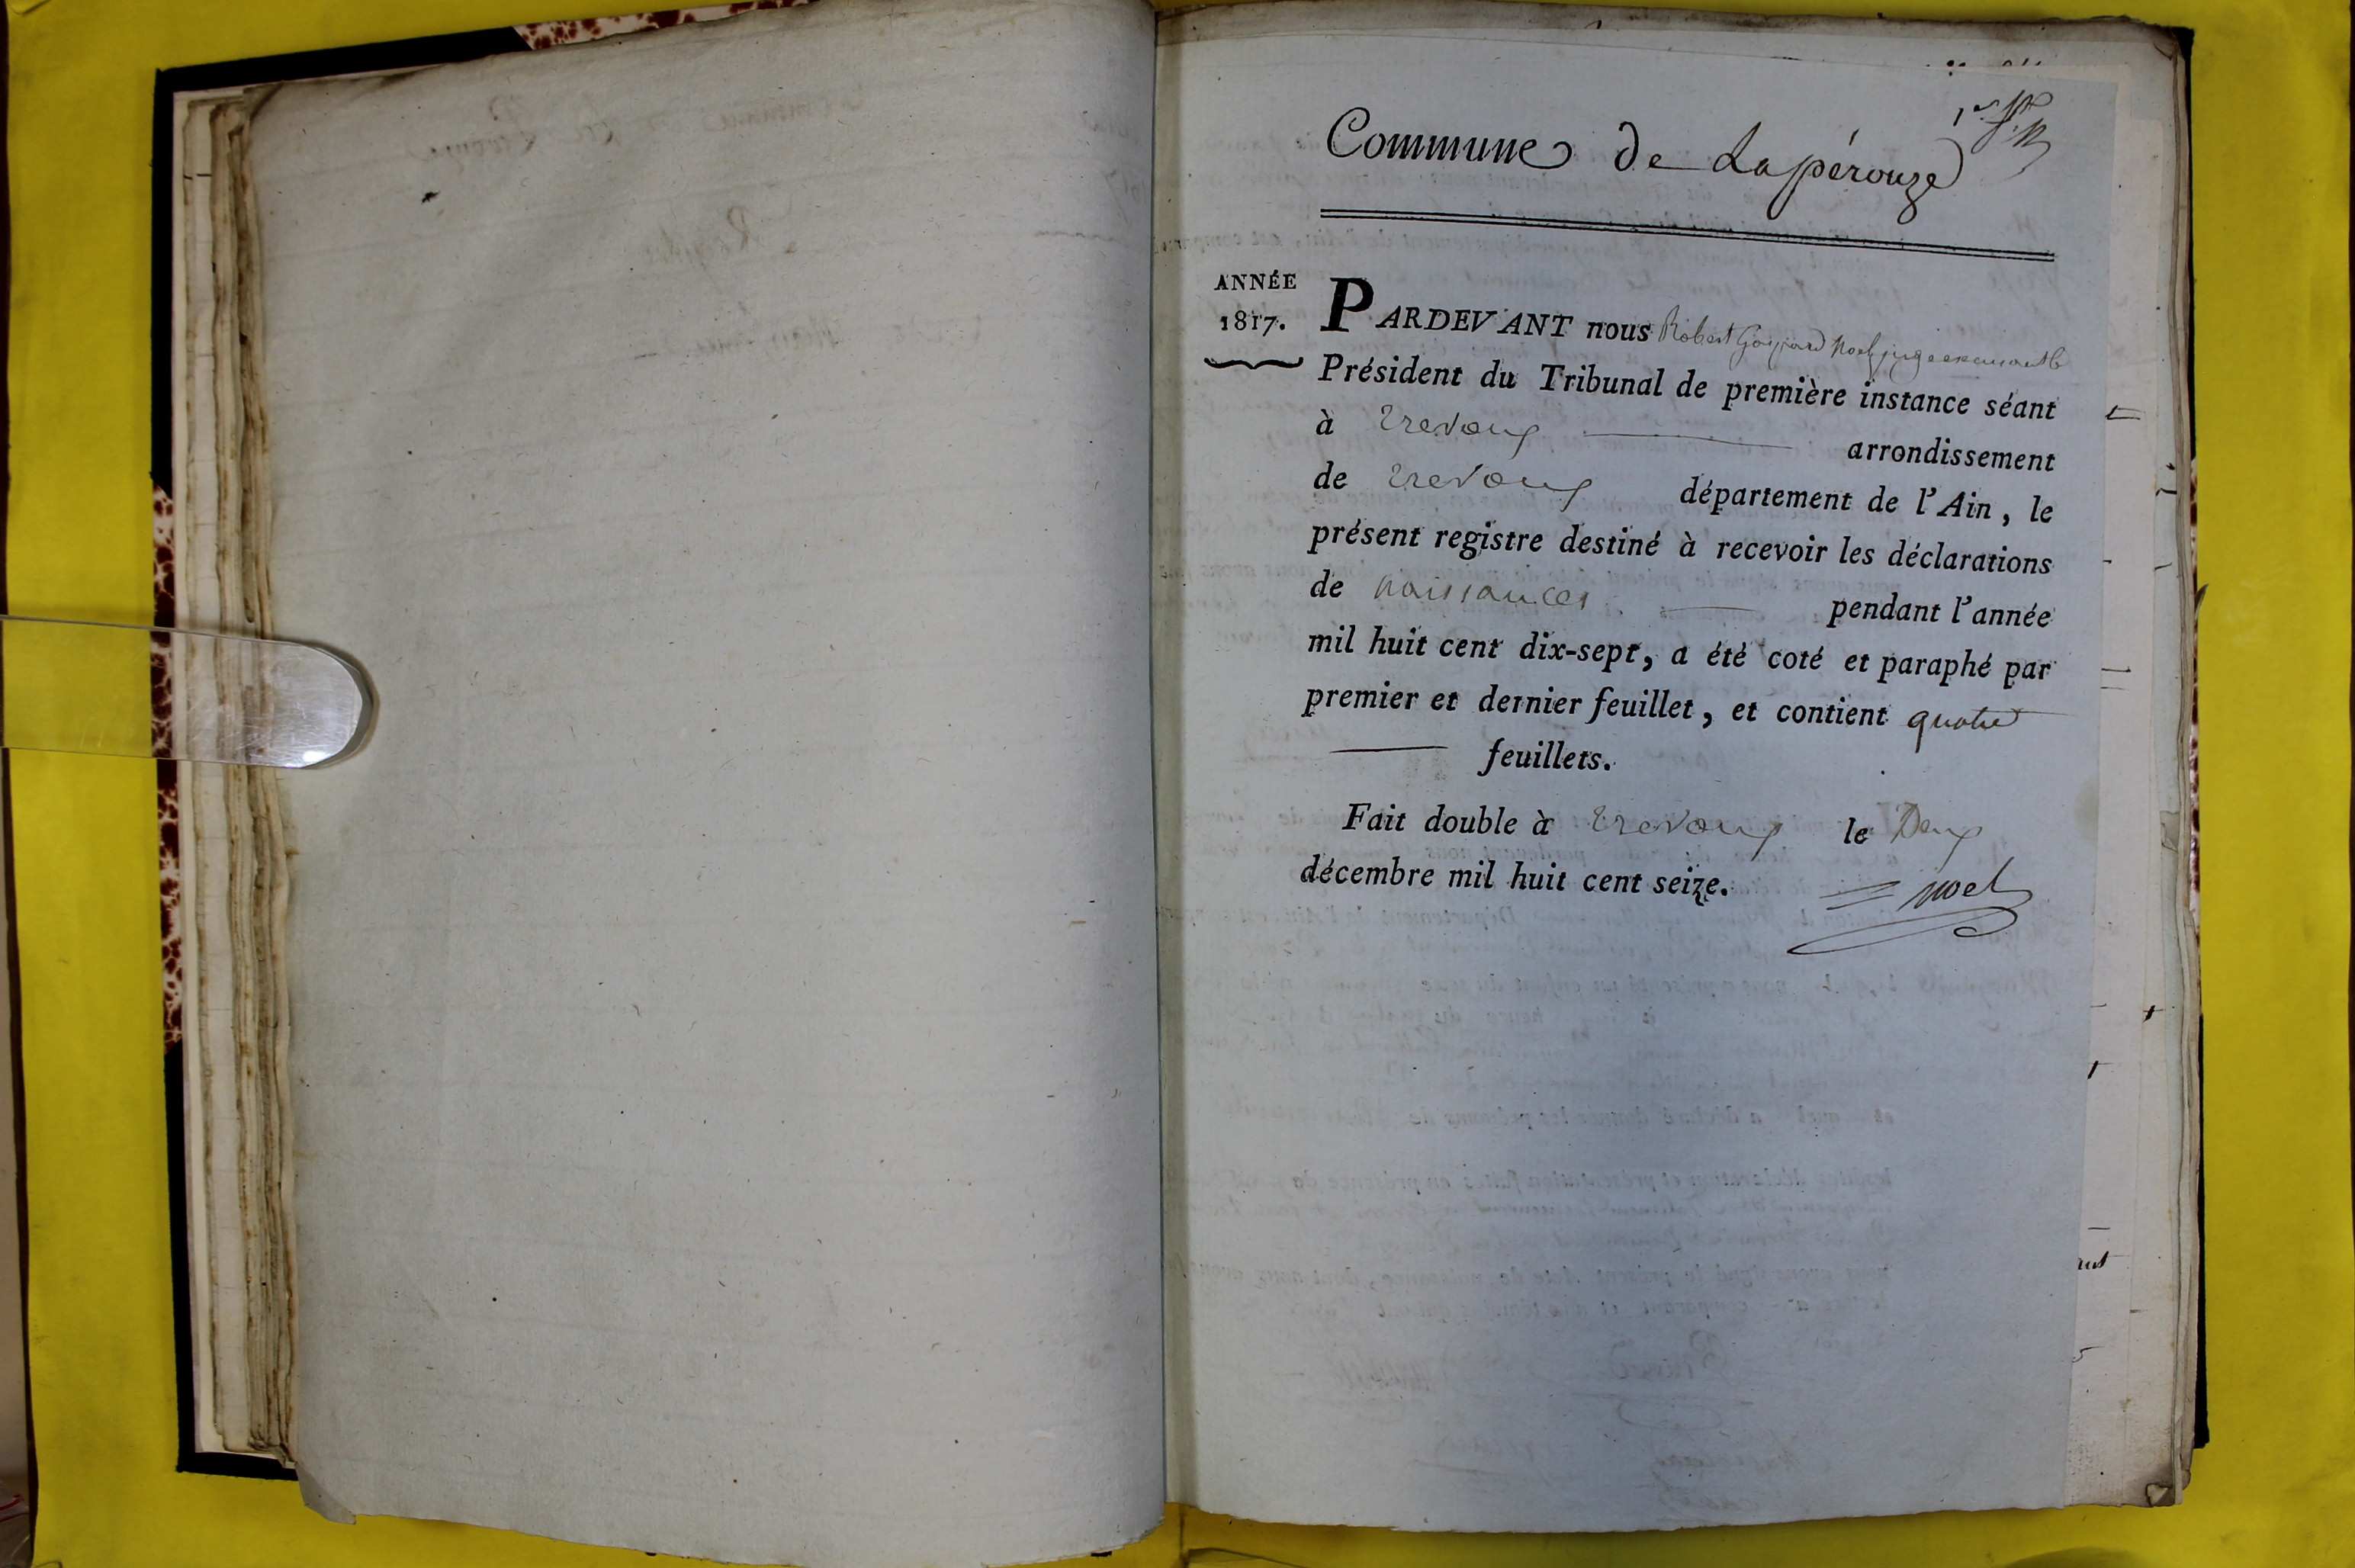 Commune de Lapérouze
ANNÉE
1817.
PARDEVANT nous Robert Gaspard Noel juge exerçant le
Président du Tribunal de première instance séant
à Trevoux arrondissement
de Trevoux département de l'Ain, le
présent registre destiné à recevoir les déclarations
de naissances pendant l'année
mil huit cent dix-sept, a été coté et paraphé par
premier et dernier feuillet, et contient quatre
feuillets.
Fait double à Trevoux le Deux
décembre mil huit cent seize.
Noel